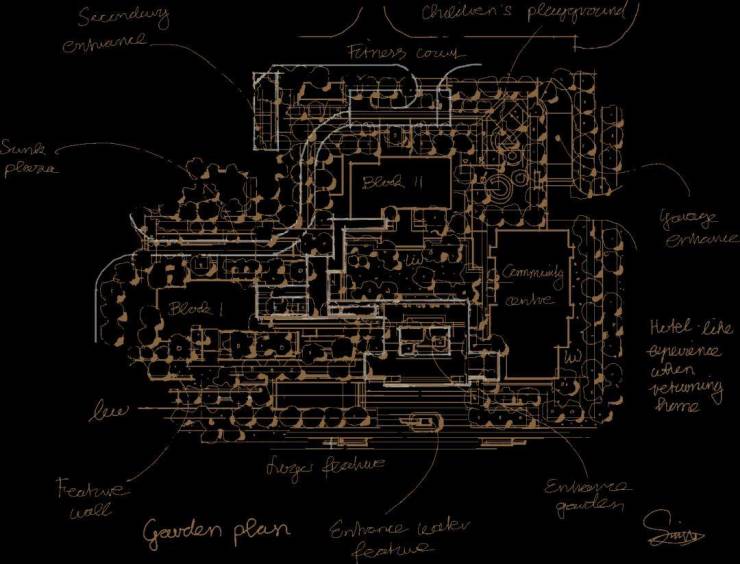 Secondary
entrance
Children's playground
Fitness court
Sunk
plaza
Block II
Garage
entrance
Community
centre
Block I
Hotel-like
experience
when
returning
home
Larger feature
Feature
wall
Entrance
garden
Garden plan
Entrance water
feature